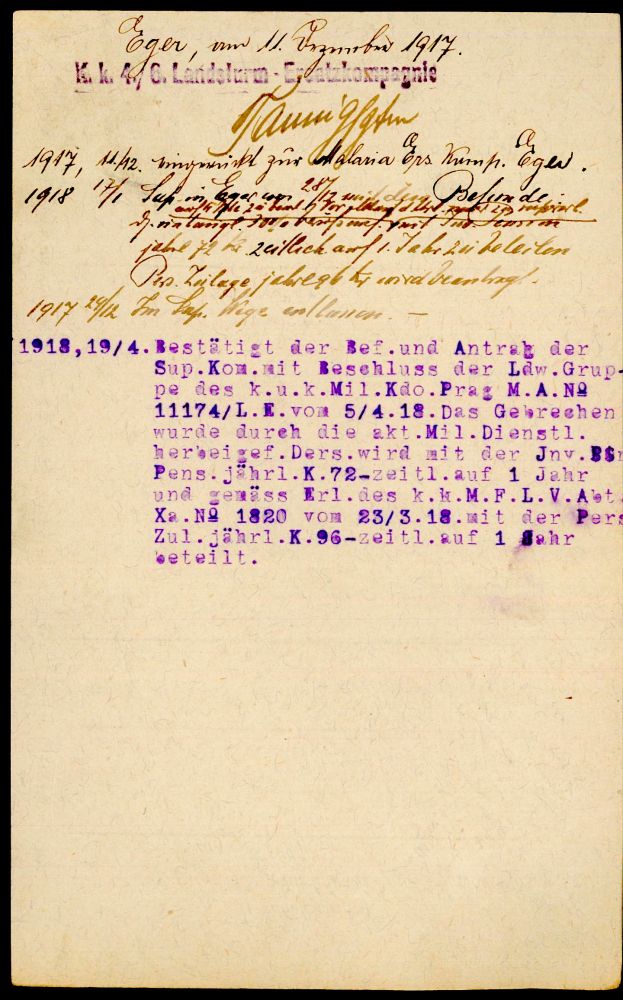 Eger, am 11. Dezember 1917.
K. k. 4./6. Landsturm-Ersatzkompagnie
1917, 11./12. eingerückt zur Malaria Ers. Komp. Eger.
1918 17/1 Sup. in Eger vom 28/12 mit dem Befunde
jährl 72 K. zeitlich auf 1. Jahr zu beteilen
Pers. Zulage jährl 96 K wird beantragt.
1917 29/12 Im Sup. Wege entlassen. —
1918,19/4. Bestätigt der Bef.und Antrag der
Sup.Kom.mit Beschluss der Ldw.Grup-
pe des k.u.k.Mil.Kdo.Prag M.A.No
11174/L.E.vom 5/4.18.Das Gebrechen
wurde durch die akt.Mil.Dienstl.
herbeigef.Ders.wird mit der Jnv.
Pens.jährl.K.72-zeitl.auf 1 Jahr
und gemäss Erl.des k.k.M.F.L.V.Abt.
Xa.No 1820 vom 23/3.18.mit der Pers
Zul.jährl.K.96-zeitl.auf 1 Jahr
beteilt.